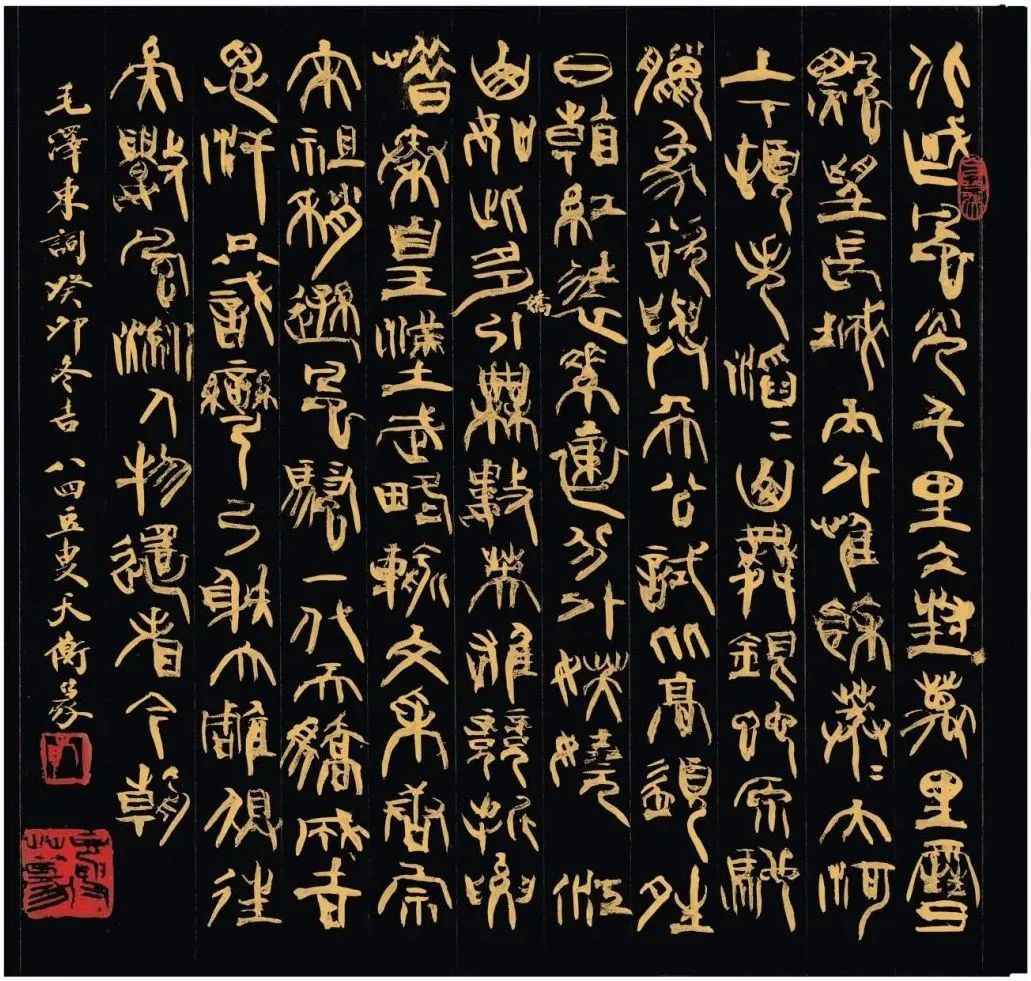 北國風光千里冰封萬里雪
飄望長城內外惟餘莽〻大河
上下頓失滔〻山舞銀蛇原馳
蠟象欲與天公試比高須晴
日看紅裝素裹分外妖嬈 江
山如此多嬌引無數英雄競折腰
惜秦皇漢武略輸文采唐宗
宋祖稍遜風騷一代天驕成吉
思汗只識彎弓射大雕俱往
矣數風流人物還看今朝
毛澤東詞癸卯冬吉 八四豆叟天衡篆